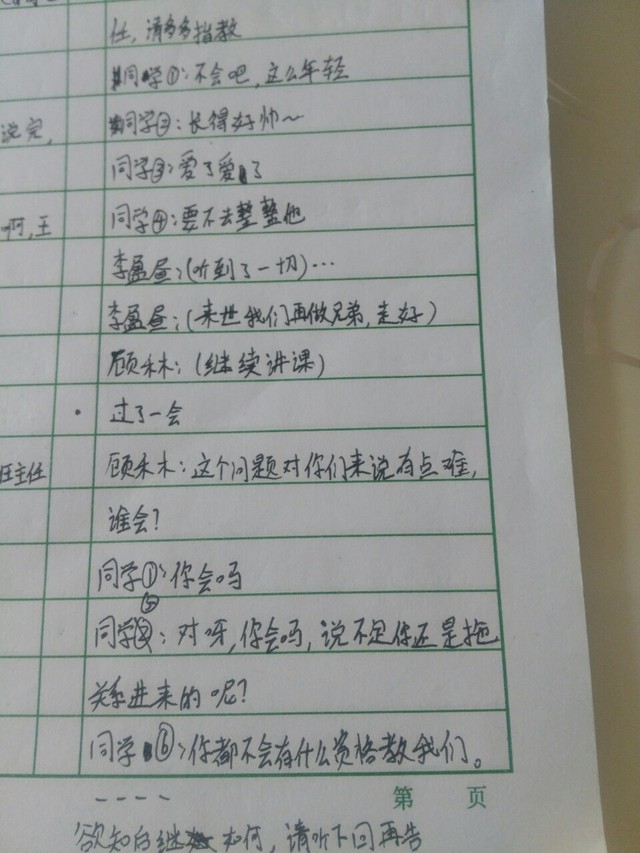 任，请多多指教
同学①：不会吧，这么年轻
说完，
同学②：长得好帅~
同学③：爱了爱了
啊，王
同学④：要不去整整他
李盈昼：(听到了一切)…
李盈昼：(来世我们再做兄弟，走好)
顾禾木：(继续讲课)
过了一会
王主任
顾禾木：这个问题对你们来说有点难，
谁会？
同学①：你会吗
同学⑤：对呀，你会吗，说不定你还是拖
关系进来的呢？
同学⑥：你都不会有什么资格教我们。
第 页
欲知 如何，请听下回再告